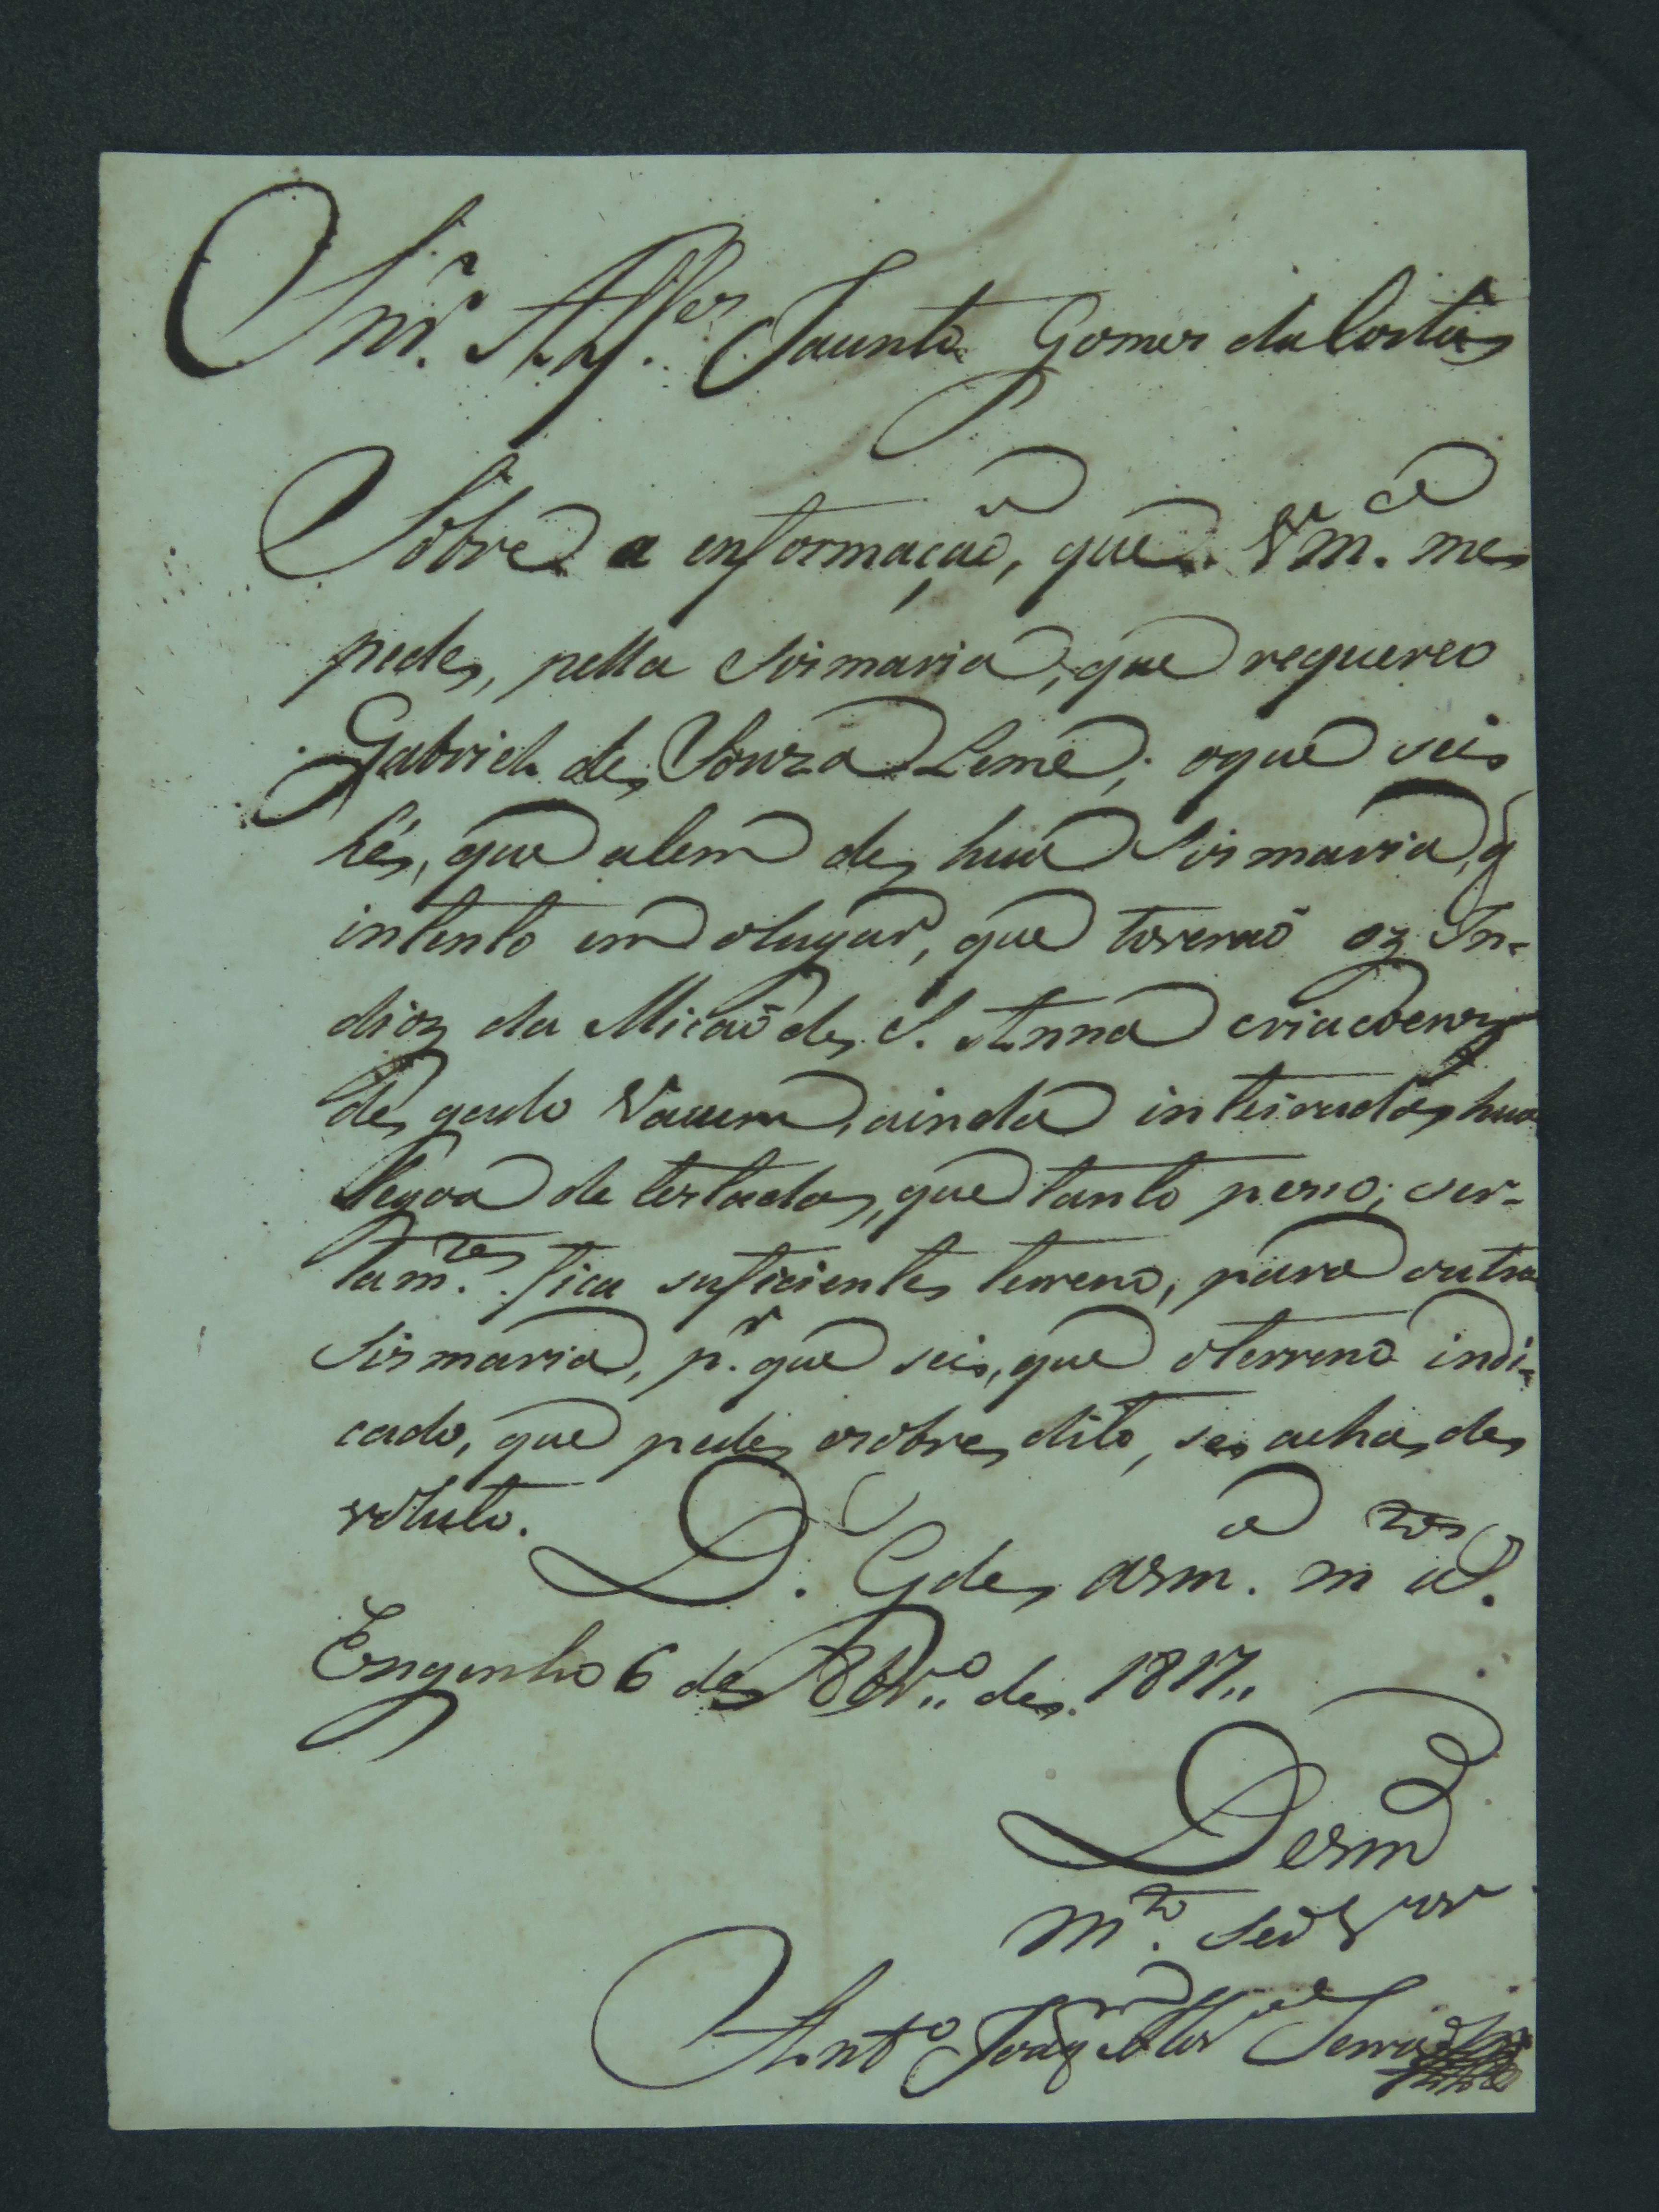 Snr. Alfes. Jacinto Gomes da Costa
Sobre a enformação, que Vmce. me
pede, pella Sismaria, que requereo
Gabriel de Souza Leme; o que sei
hé, que alem de hua Sismaria, q
intento em o lugar, que tiverão oz In-
dioz da Mição de S. Anna criadores
de gado Vacum, ainda inteirada hua
legoa de testada, que tanto peno; cer-
tamte. fica suficiente terreno, para outra
Sismaria, pr. que sei, que o terreno indi-
cado, que pede o sobre dito, se acha de
voluto.
D. Gde a Vmce. ms as.
Engenho 6 de 8br.º de 1817,,
De Vm
mto. Seo Vor
Antº Joaqm